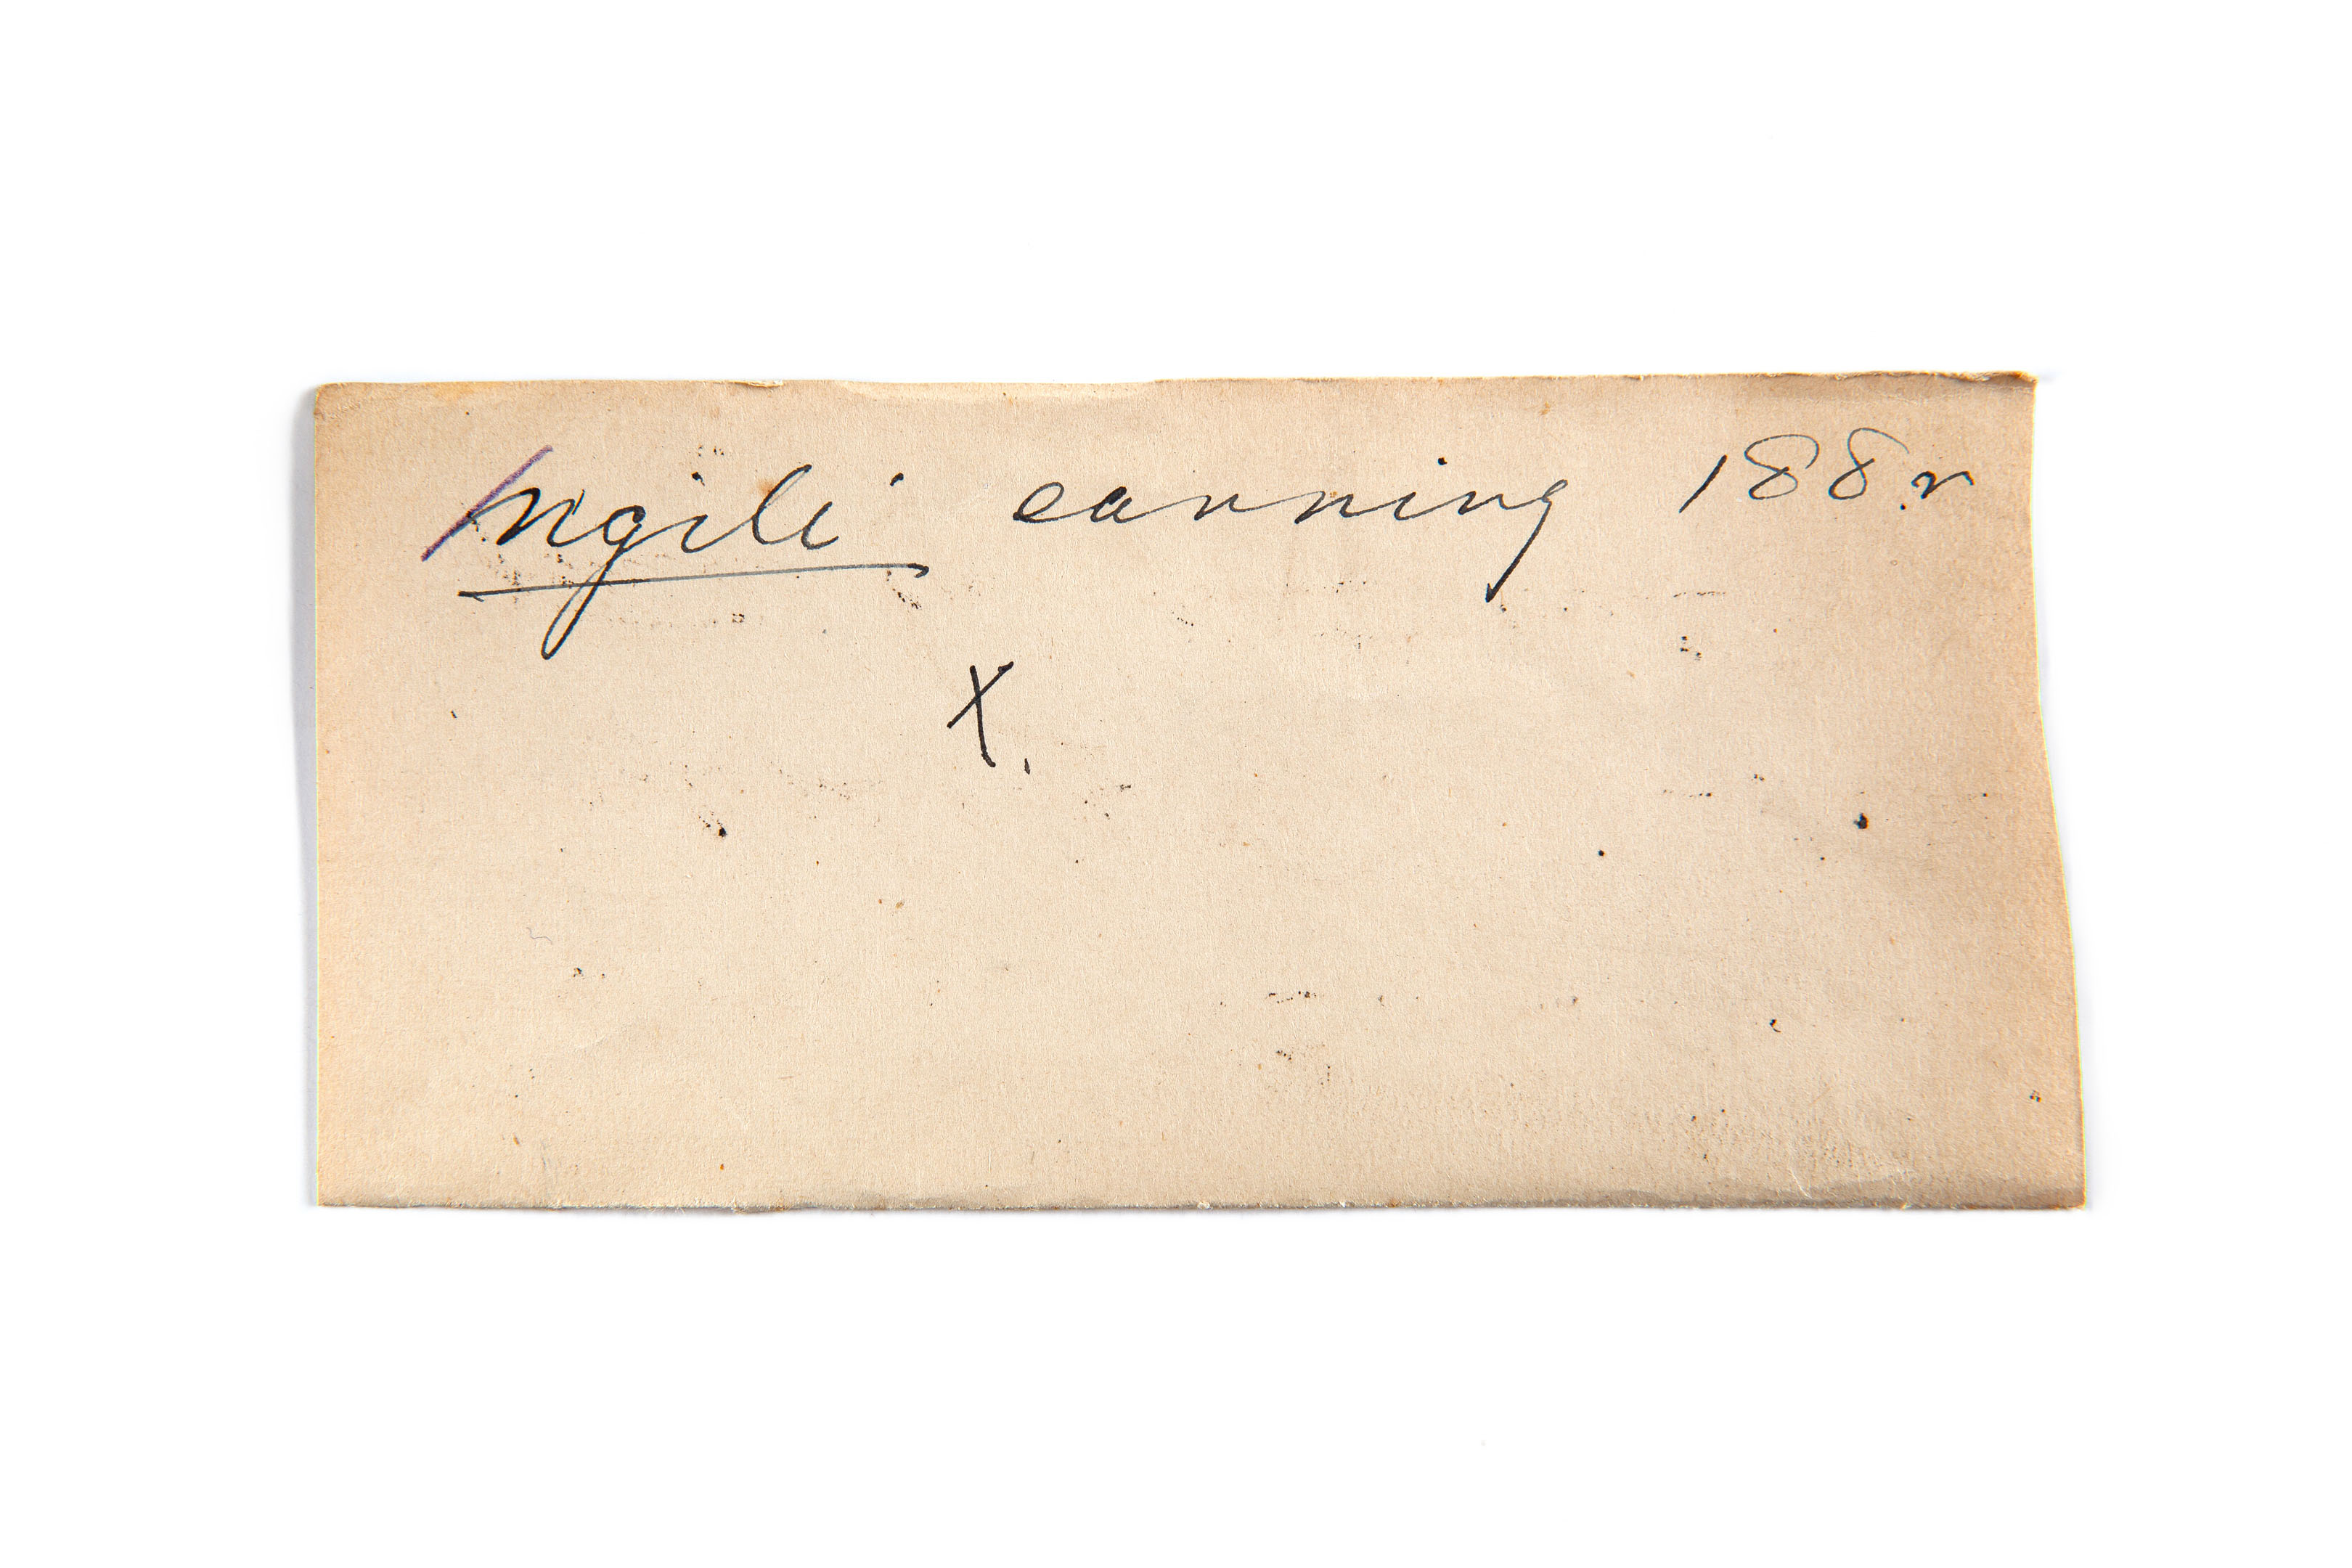 Mgili canning 188 r
X.